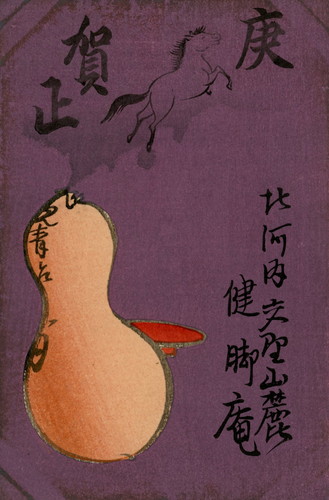 庚
賀正
北河内交野山麓
健脚庵